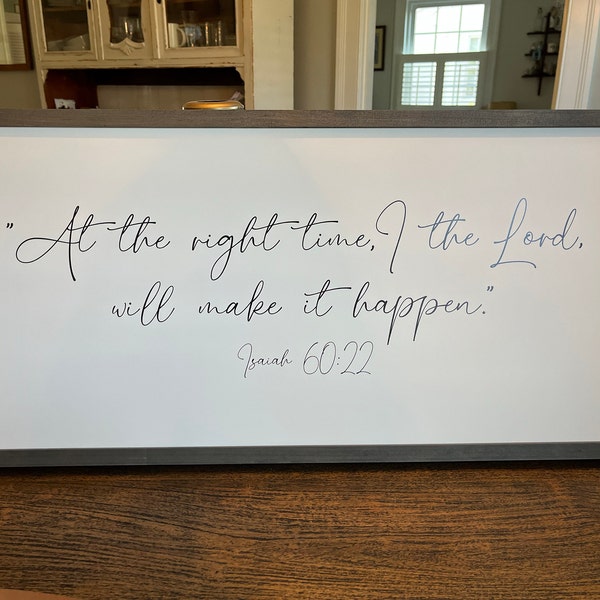 "At the right time, I the Lord,
will make it happen."
Isaiah 60:22